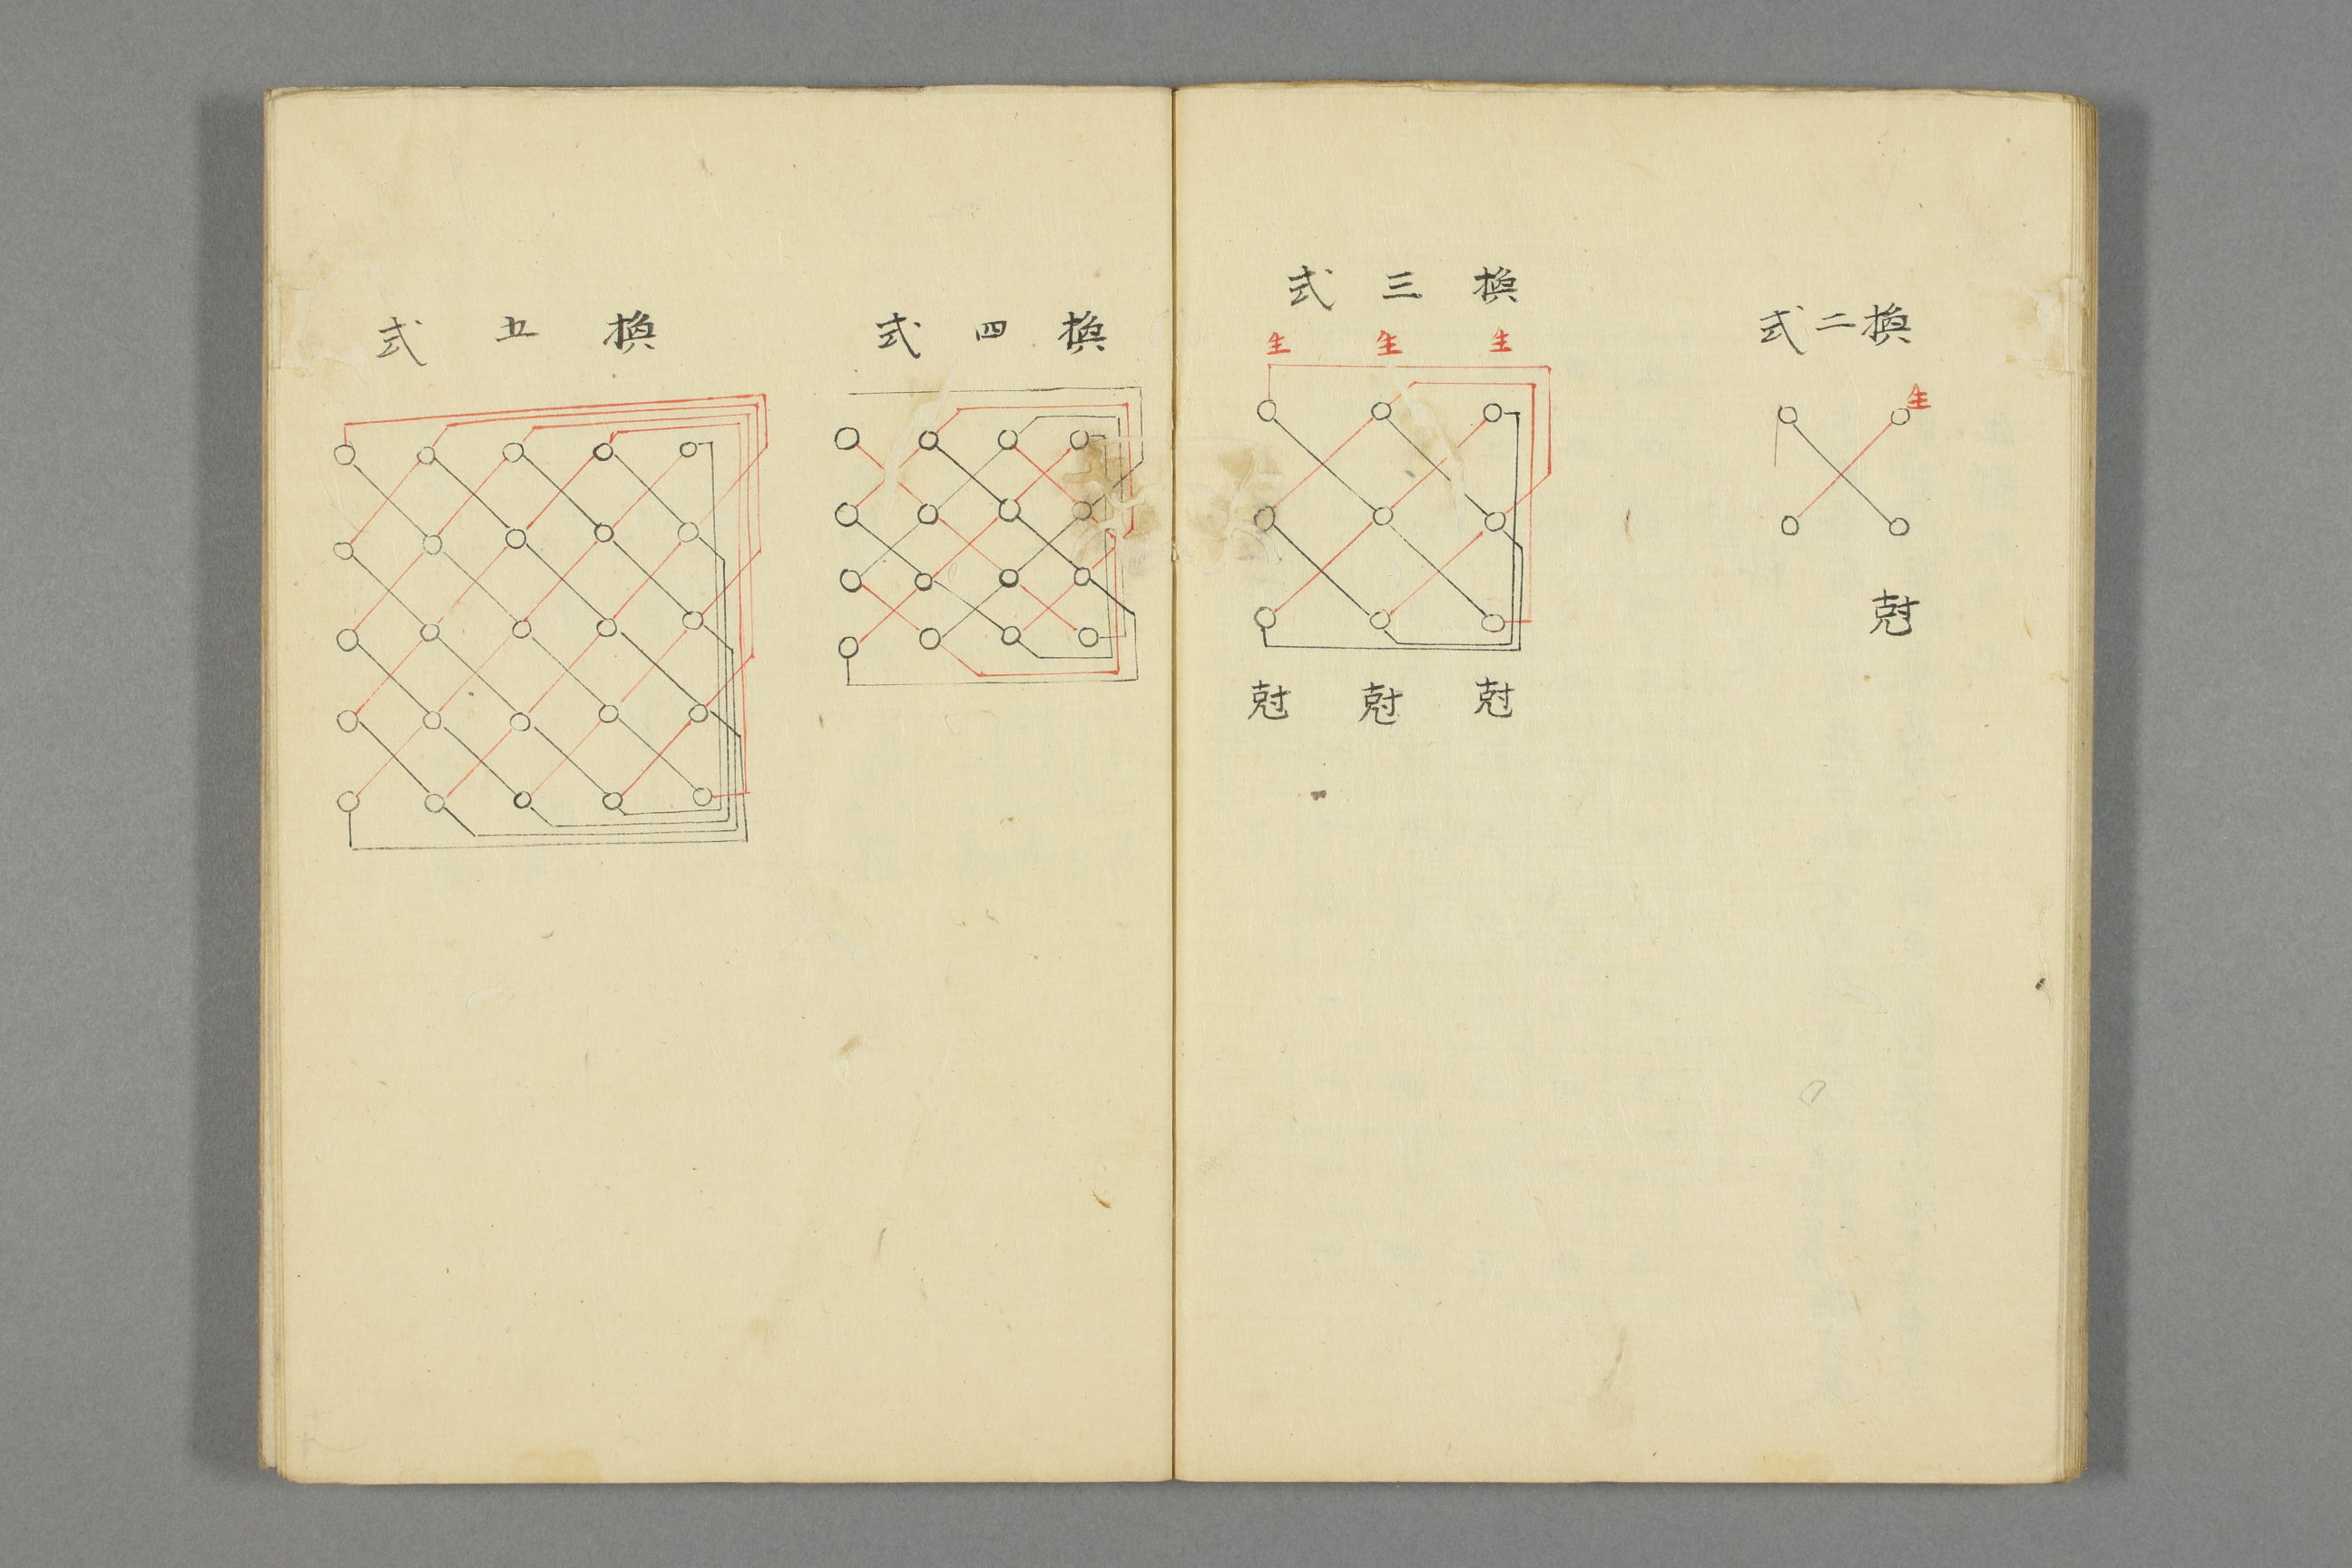 換二式
生
尅
換三式
生 生 生
尅 尅 尅
換四式
換五式